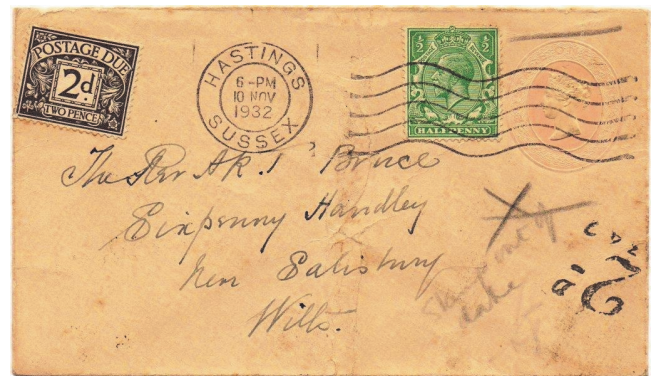 POSTAGE DUE
2d
TWO PENCE
HASTINGS
6-PM
10 NOV
1932
SUSSEX
½ ½
HALFPENNY
The Rev A.K.T Bruce
Sixpenny Handley
Nen Salisbury
Wilts.
out of
date
2